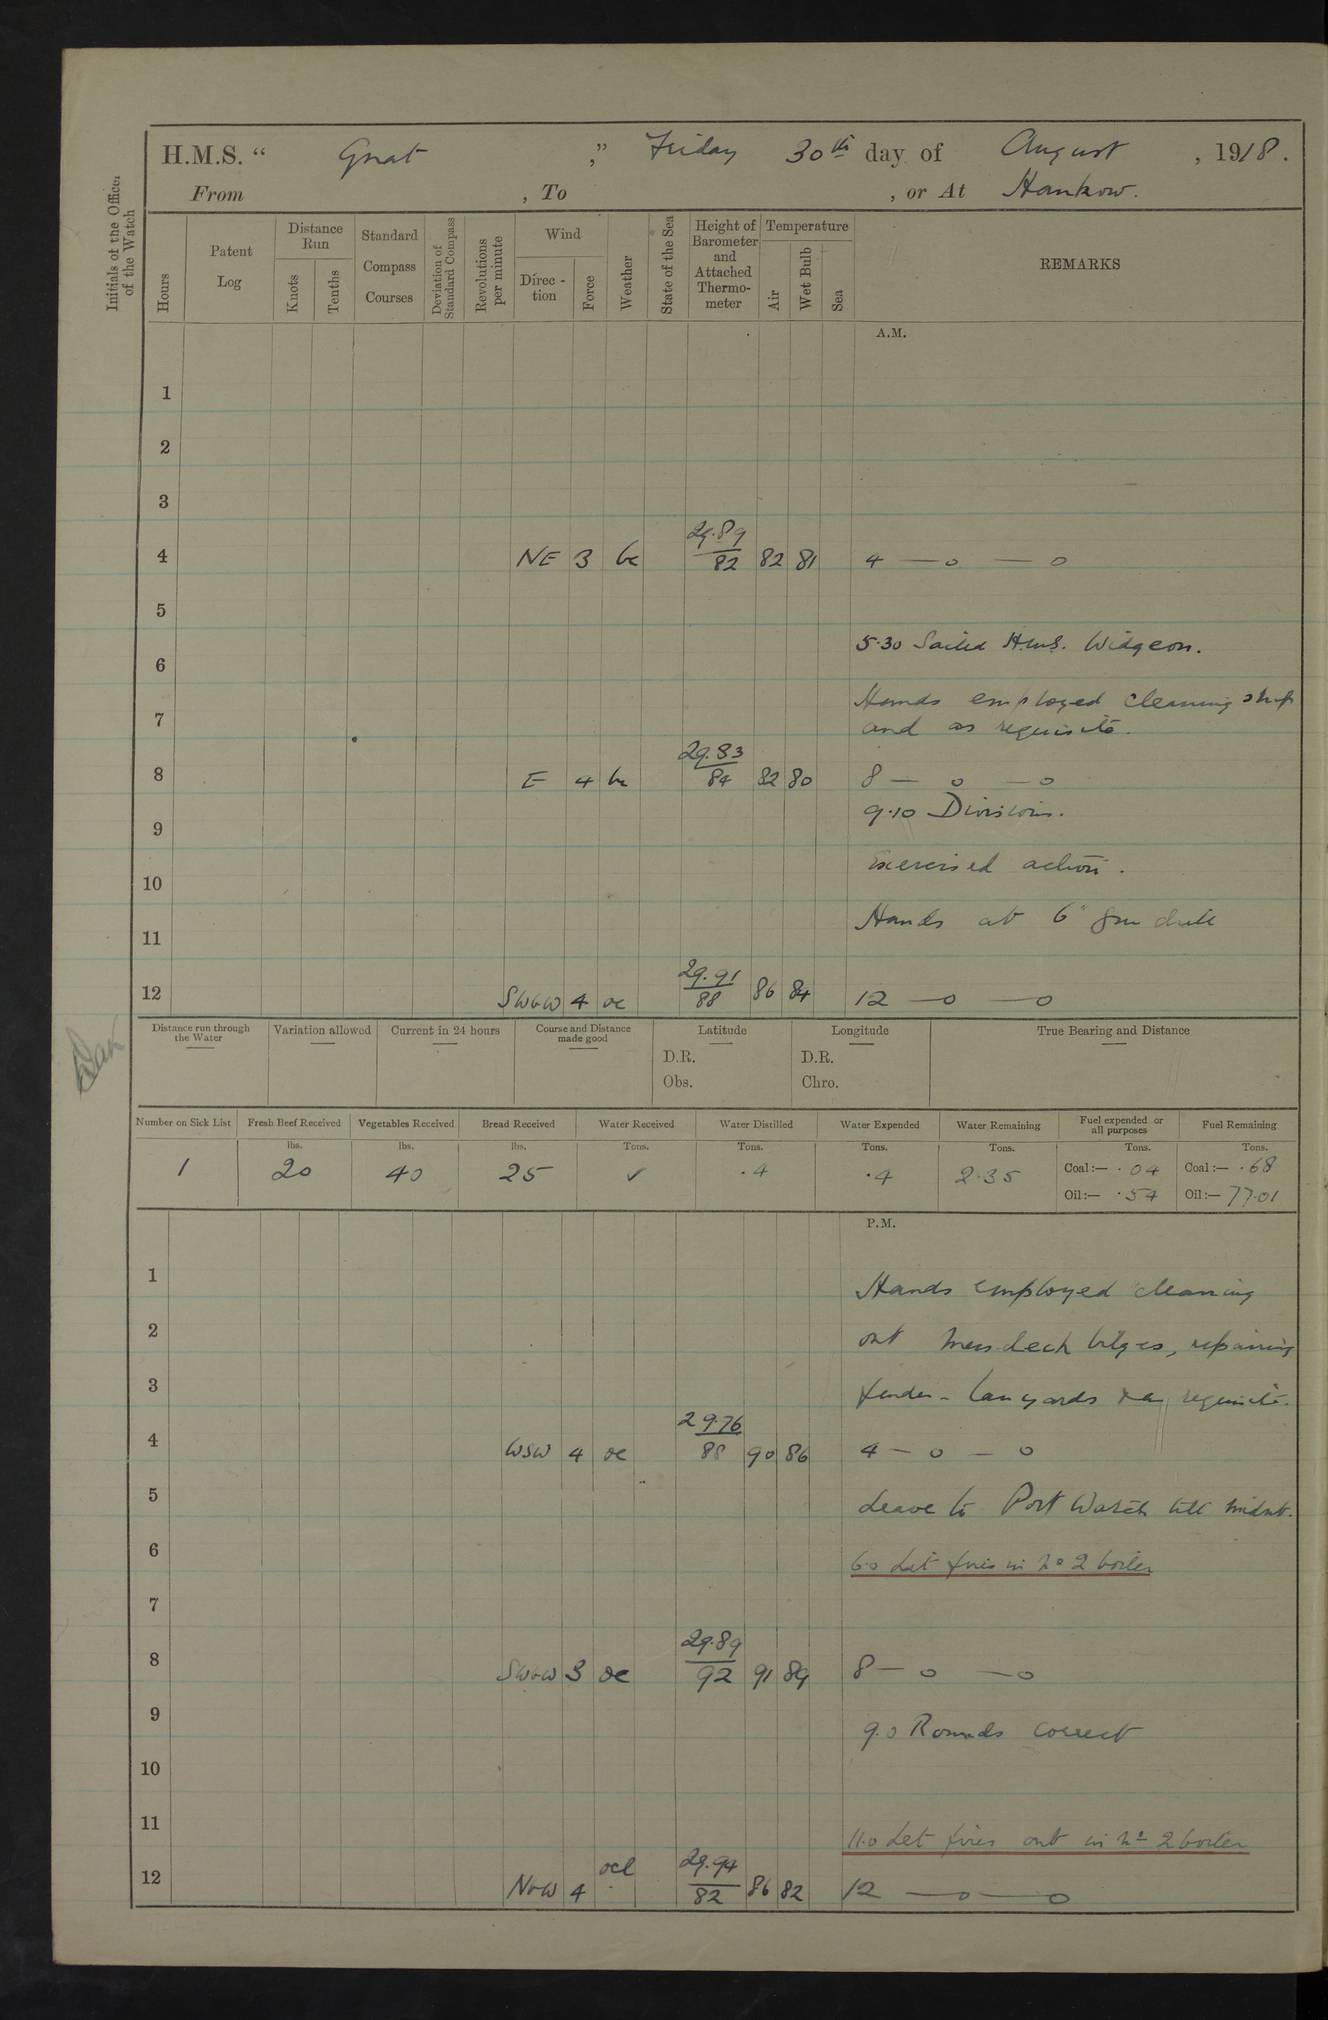 H.M.S. “ Gnat ,” Friday 30th day of August , 1918.
From , To , or At Hankow.
Initials of the Officer of the Watch
Hours
Patent Log
Distance Run
Knots
Tenths
Standard Compass Courses
Deviation of Standard Compass
Revolutions per minute
Wind
Direc-tion
Force
Weather
State of the Sea
Height of Barometer and Attached Thermo-meter
Temperature
Air
Wet Bulb
Sea
REMARKS
A.M.
1
2
3
29.89
4 NE 3 bc 82 82 81 4 — o — o
5
5.30 Sailed H.M.S. Widgeon.
6
Hands employed cleaning ship
7
and as requisite.
29.83
8 E 4 bc 84 82 80 8 — o — o
9.10 Divisions.
9
Exercised action.
10
Hands at 6" gun drill
11
29.91
12 SWbW 4 oc 88 86 84 12 — o — o
Distance run through the Water
Variation allowed
Current in 24 hours
Course and Distance made good
Latitude
D.R.
Obs.
Longitude
D.R.
Chro.
True Bearing and Distance
Number on Sick List Fresh Beef Received Vegetables Received Bread Received Water Received Water Distilled Water Expended Water Remaining Fuel expended or all purposes Fuel Remaining
lbs. lbs. lbs. Tons. Tons. Tons. Tons. Tons. Tons.
1 20 40 25 ✓ .4 .4 2.35 Coal:— .04 Coal:— .68
Oil:— .54 Oil:— 77.01
P.M.
1
Hands employed cleaning
2
out Mess deck bilges, repairing
3
fender lanyards & as requisite.
29.76
4 WSW 4 oc 88 90 86 4 — o — o
5
Leave to Port Watch till midnt.
6
6.0 Lit fires in No 2 boiler
7
29.89
8 SWbW 3 oc 92 91 89 8 — o — o
9
9.0 Rounds correct
10
11
11.0 Let fires out in No 2 boiler
ocl 29.94
12 NbW 4 82 86 82 12 — o — o